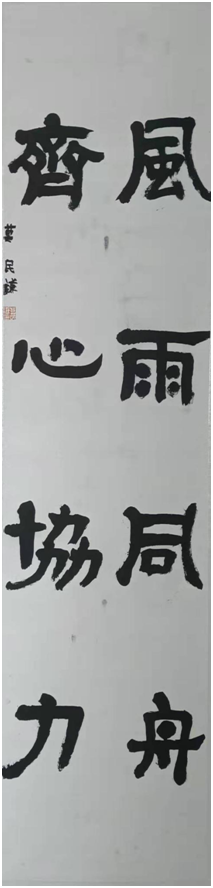 風雨同舟
齊心協力
莫民謹